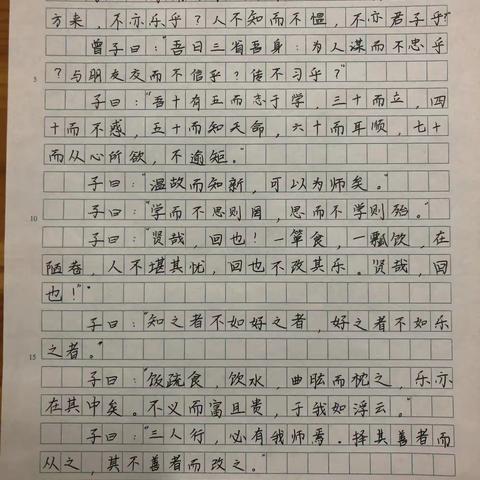 方来，不亦乐乎？人不知而不愠，不亦君子乎？"
曾子曰："吾日三省吾身：为人谋而不忠乎
5
？与朋友交而不信乎？传不习乎？"
子曰："吾十有五而志于学，三十而立，四
十而不惑，五十而知天命，六十而耳顺，七十
而从心所欲，不逾矩。"
子曰："温故而知新，可以为师矣。"
10
子曰："学而不思则罔，思而不学则殆。"
子曰："贤哉，回也！一箪食，一瓢饮，在
陋巷，人不堪其忧，回也不改其乐。贤哉，回
也！"
子曰："知之者不如好之者，好之者不如乐
15
之者。"
子曰："饭疏食，饮水，曲肱而枕之，乐亦
在其中矣。不义而富且贵，于我如浮云。"
子曰："三人行，必有我师焉。择其善者而
从之，其不善者而改之。"